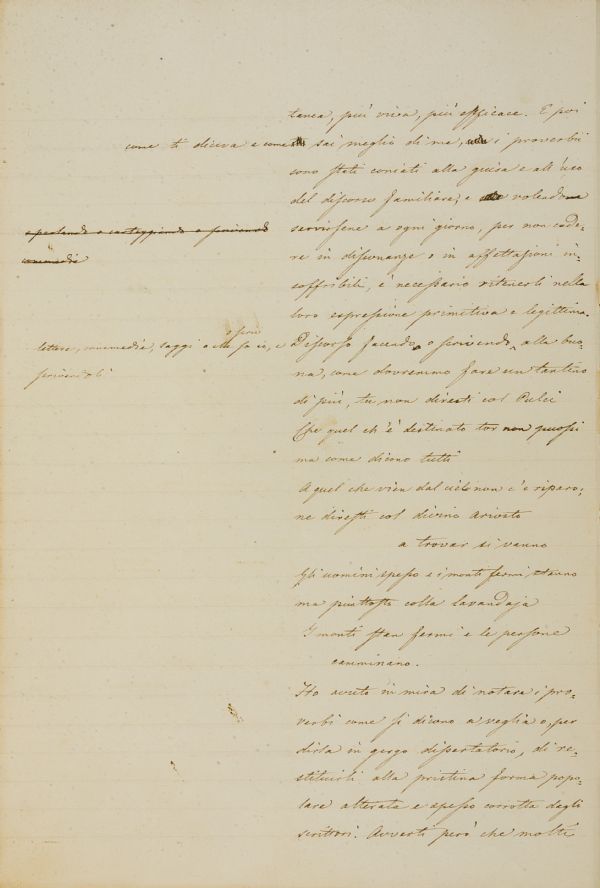 tanea, più viva, più efficace. E poi
come ti diceva e come sai meglio di me, i proverbii
sono stati coniati alla guisa e all'uso
del discorso familiare; e volendo
a parlando o carteggiando o scrivendo
servirsene a ogni giorno, per non cade-
commedie
re in dissonanze o in affettazioni in-
soffribili, è necessario ritenerli nella
loro espressione primitiva e legittima.
o scrivi
lettere, commedie, saggi o che so io, e
Discorso facendo o scrivendo alla buo-
scrivendo
na, come dovremmo fare un tantino
di più, tu non diresti col Pulci
Che quel ch'è destinato tor non puossi
ma come dicono tutti
A quel che vien dal cielo non c'è riparo;
ne diresti col divino Ariosto
a trovar si vanno
Gli uomini spesso e i monti fermi stanno
ma piuttosto colla lavandaja
I monti stan fermi e le persone
camminano.
Ho avuto in mira di notare i pro-
verbi come si dicono a veglia o, per
dirla in gergo dissertatorio, di re-
stituirli alla pristina forma popo-
lare alterata e spesso corrotta degli
scrittori. Avverti però che molti